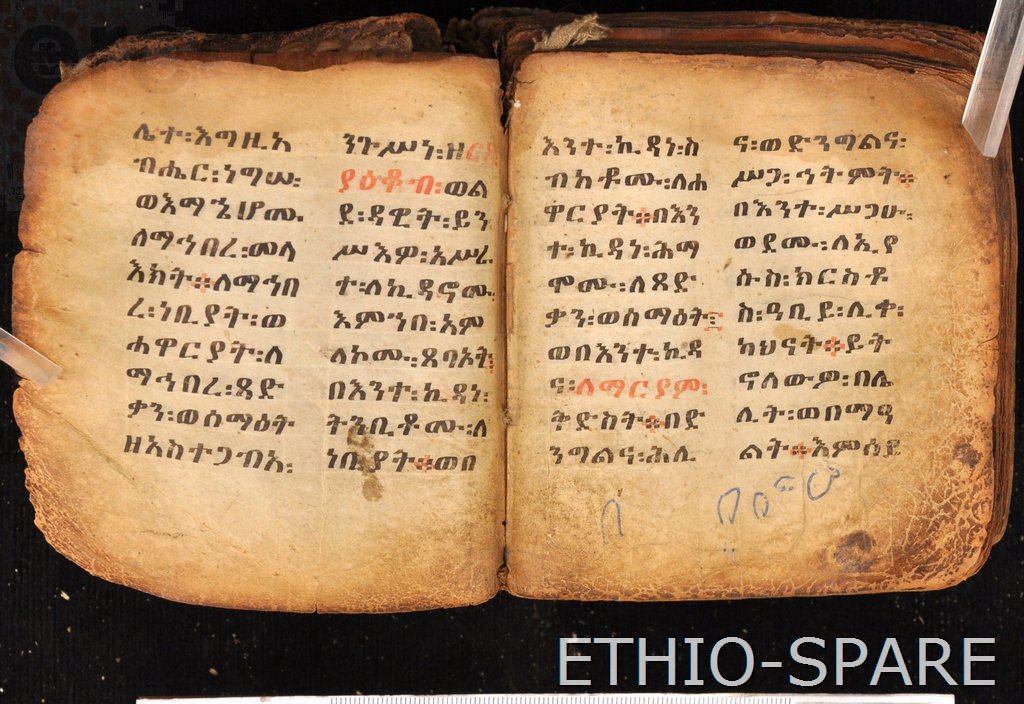 ሌተ፡እግዚአ
ብሔር፡ነግሠ፡
ወእማኄሆሙ
ለማኅበረ፡መላ
እክት፡፡ለማኅበ
ረ፡ነቢያት፡ወ
ሐዋርያት፡ለ
ማኅበረ፡ጻድ
ቃን፡ወሰማዕት
ዘአስተጋብአ፡
ንጉሥነ፡ዘ
ያዕቆብ፡ወል
ደ፡ዳዊት፡ይን
ሥእዎ፡አሥረ
ተ፡ለኪዳኖሙ
እምኀበ፡አም
ላኮሙ፡ጸባኦት፡
በእንተ፡ኪዳነ፡
ትንቢቶሙ፡ለ
ነቢያት፡፡ወበ
እንተ፡ኪዳነ፡ስ
ብከቶሙ፡ለሐ
ዋርያት፡፡በእን
ተ፡ኪዳነ፡ሕማ
ሞሙ፡ለጻድ
ቃን፡ወሰማዕት፡፡
ወበእንተ፡ኪዳ
ና፡ለማርያም፡
ቅድስት፡፡በድ
ንግልና፡ሕሊ
ና፡ወድንግልና፡
ሥጋ፡ኀትምት፡፡
በእንተ፡ሥጋሁ፡
ወደሙ፡ለኢየ
ሱስ፡ክርስቶ
ስ፡ዓቢይ፡ሊቀ፡
ካህናት፡፡ይት
ኖለውዎ፡በሌ
ሊት፡ወበማዓ
ልት፡፡እምዕፀ
ETHIO-SPARE